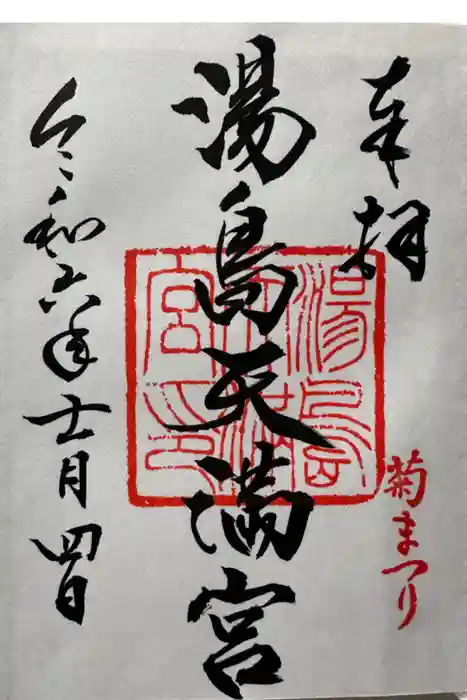 奉拝
菊まつり
湯島天満宮
湯島天満宮印
令和六年十一月四日